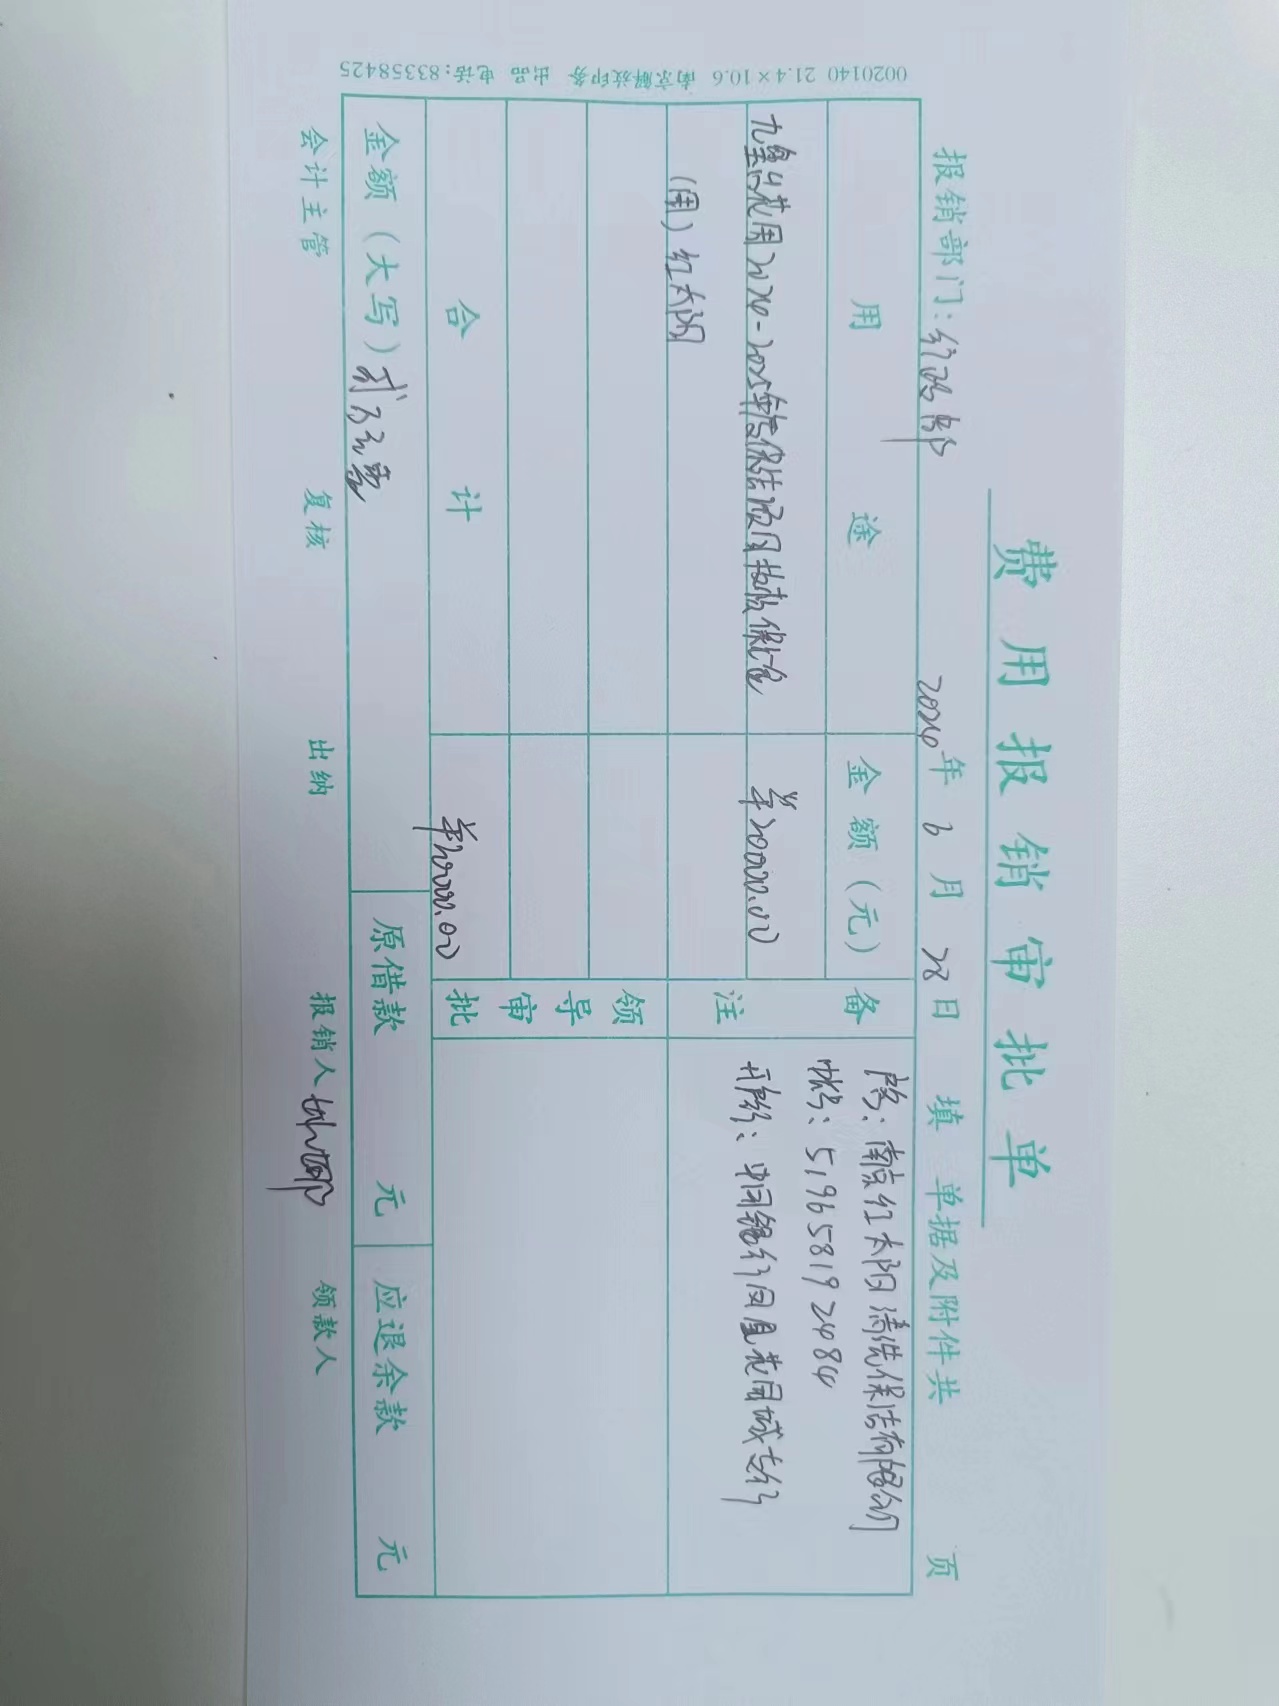 费用报销审批单
报销部门：行政部 2024年6月28日填 单据及附件共 页
用途 金额（元） 备注
九 花园2024-2025年度保洁 保洁 ￥20000.00
（周）红太阳
户名：南京红太阳清洗保洁有限公司
帐号：519658192484
开户行：中国银行凤凰花园城支行
领导审批
合计 ￥20000.00
金额（大写）贰万元整 原借款 元 应退余款 元
会计主管 复核 出纳 报销人 领款人
0020140 21.4×10.6 南京解放印务 出品 电话：83358425